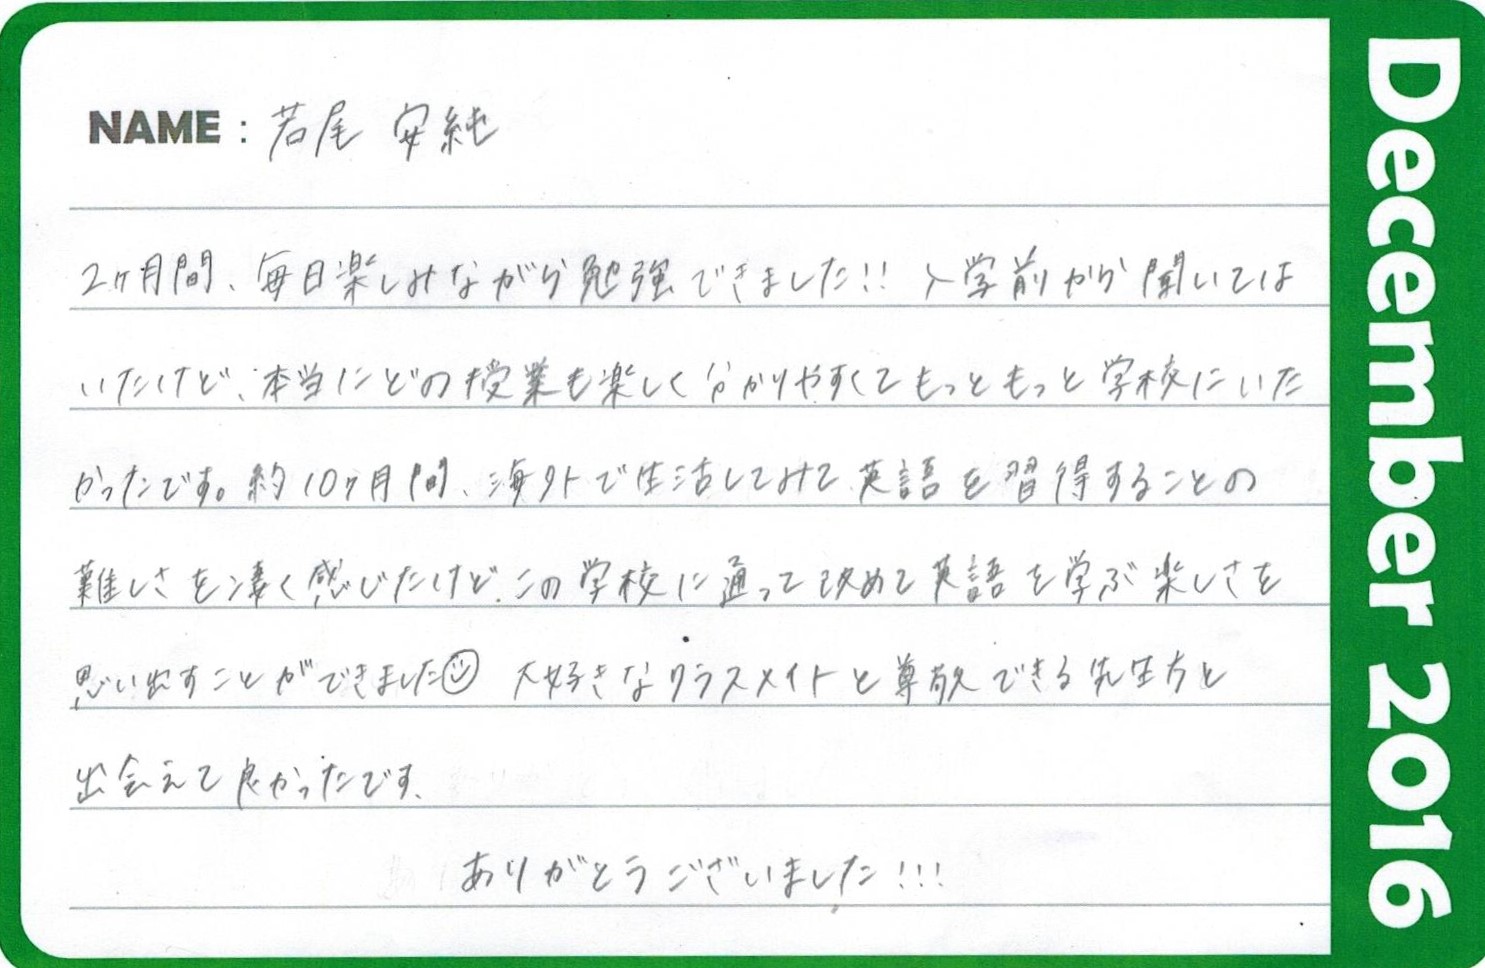 NAME : 若尾 安純
2ヶ月間、毎日楽しみながら勉強できました!! 入学前から聞いては
いたけど、本当にどの授業も楽しく分かりやすくてもっともっと学校にいた
かったです。約10ヶ月間、海外で生活してみて、英語を習得することの
難しさを凄く感じたけど、この学校に通って改めて英語を学ぶ楽しさを
思い出すことができました☺ 大好きなクラスメイトと尊敬できる先生方と
出会えて良かったです、
ありがとうございました!!!
December 2016